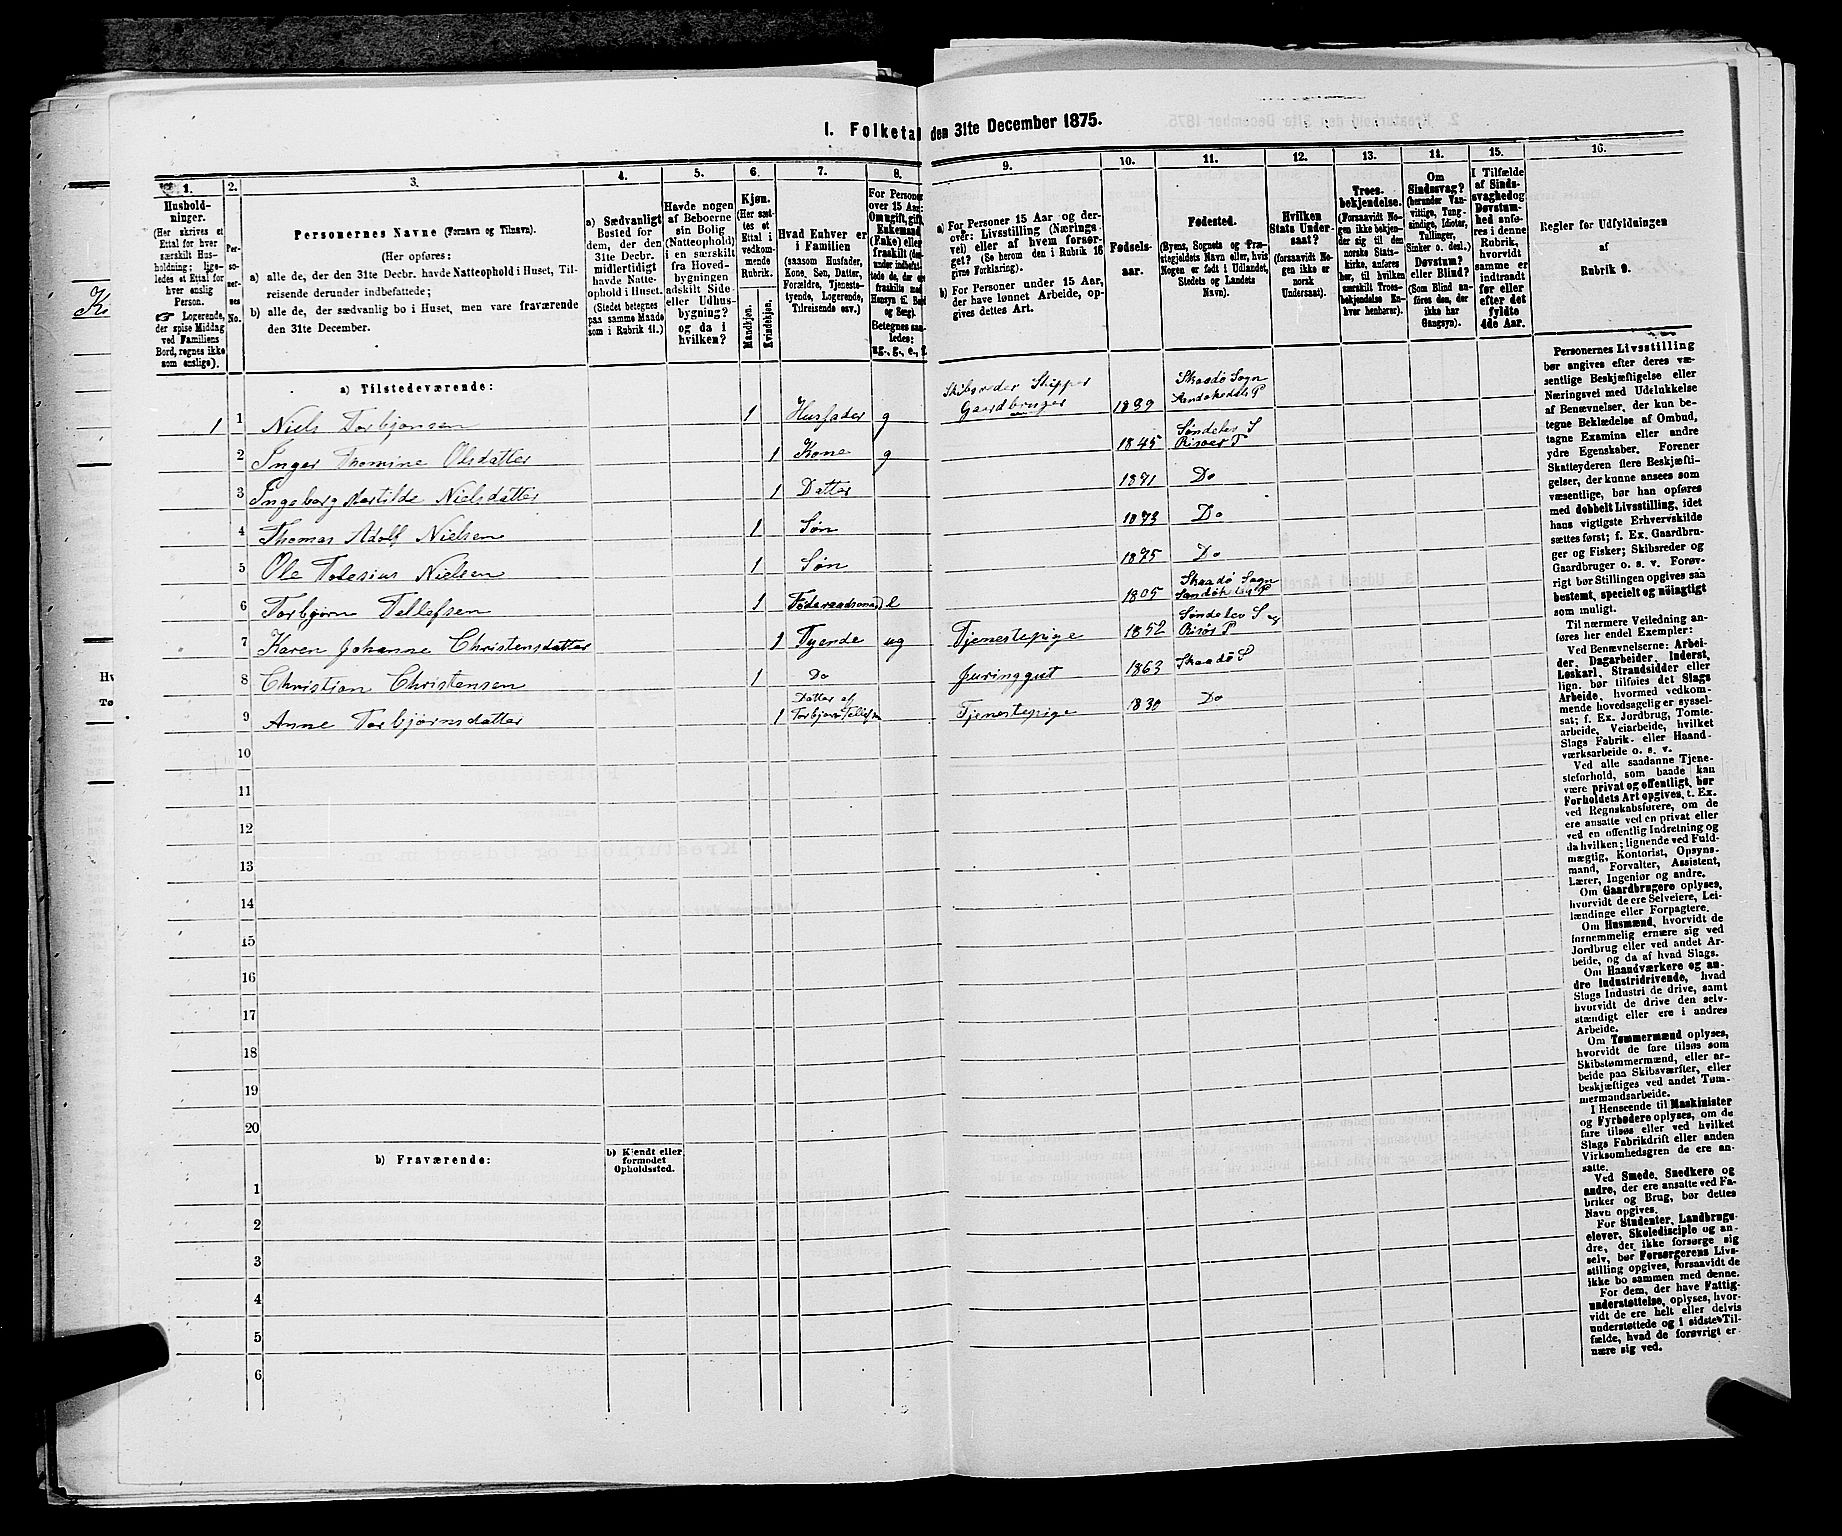 1. Folketal den 31te December 1875.
1.
Hushold-
ninger.
(Her skrives et
Ettal for hver
særskilt Hus-
holdning; lige-
ledes et Ettal for
hver enslig
Person.
☞ Logerende,
der spise Middag
ved Familiens
Bord, regnes ikke
som enslige).
2.
Per-
so-
ner-
nes
No.
3.
Personernes Navne (Fornavn og Tilnavn).
(Her opføres:
a) alle de, der den 31te Decbr. havde Natteophold i Huset, Til-
reisende derunder indbefattede;
b) alle de, der sædvanlig bo i Huset, men vare fraværende
den 31te December.
4.
a) Sædvanligt
Bosted for
dem, der den
31te Decbr.
midlertidigt
havde Natte-
ophold i Huset.
(Stedet betegnes
paa samme Maade
som i Rubrik 11.)
5.
Havde nogen
af Beboerne
sin Bolig
(Natteophold)
i en særskilt
fra Hoved-
bygningen
adskilt Side-
eller Udhus-
bygning?
og da i
hvilken?
6.
Kjøn.
(Her sæt-
tes et
Ettal i
vedkom-
mende
Rubrik.
Mandkjøn.
Kvindekjøn.
7.
Hvad Enhver er
i Familien
(saasom Husfader,
Kone, Søn, Datter,
Forældre, Tjeneste-
tyende, Logerende,
Tilreisende osv.)
8.
For Personer
over 15 Aar:
Om ugift, gift,
Enkemand
(Enke) eller
fraskilt
Betegnes saa-
ledes:
ug., g., e., f.
9.
a) For Personer 15 Aar og der-
over: Livsstilling (Nærings-
vei) eller af hvem forsør-
get? (Se herom den i Rubrik 16
givne Forklaring).
b) For Personer under 15 Aar,
der have lønnet Arbeide, op-
gives dettes Art.
10.
Fødsels-
aar.
11.
Fødested.
(Byens, Sognets og Præ-
stegjeldets Navn eller, hvis
Nogen er født i Udlandet,
Stedets og Landets
Navn).
12.
Hvilken
Stats Under-
saat?
(forsaavidt No-
gen ikke er
norsk
Undersaat).
13.
Troes-
bekjendelse.
(Forsaavidt No-
gen ikke bekjen-
der sig til den
norske Stats-
kirke, anføres
her, til hvilken
særskilt Troes-
bekjendelse En-
hver henhører).
14.
Om
Sindssvag?
(herunder Van-
vittige, Tung-
sindige, Idioter,
Tullinger,
Sinker o. desl.)
Døvstum?
eller Blind?
(Som Blind an-
føres den, der
ikke har
Gangsyn).
15.
I Tilfælde
af Sinds-
svaghed og
Døvstum-
hed anfø-
res i denne
Rubrik,
hvorvidt
samme er
indtraadt
før eller
efter det
fyldte
4de Aar.
16.
Regler for Udfyldningen
af
Rubrik 9.
a) Tilstedeværende:
1 1 Niels Torbjønsen 1 Husfader g Skibsreder Skipper Gaardbruger 1839 Skaadö Sogn Sandøkedals P
2 Inger Thomine Olsdatter 1 Kone g 1845 Søndeles S Risøer P
3 Ingeborg Martilde Nielsdatter 1 Datter 1871 Do
4 Thomas Adolf Nielsen 1 Søn 1873 Do
5 Ole Tolesius Nielsen 1 Søn 1875 Do
6 Torbjørn Tellefsen 1 Föderaadsmand e 1805 Skaadö Sogn
7 Karen Johanne Christensdatter 1 Tyende ug Tjenestepige 1852 Søndelev S og Risør P
8 Christian Christensen 1 Do 1863 Skaadö S
9 Anne Torbjørnsdatter 1 Datter af Torbjørn Tellefsen Tjenestepige 1830 Do
10
11
12
13
14
15
16
17
18
19
20
b) Fraværende:
b) Kjendt eller
formodet
Opholdssted.
1
2
3
4
5
6
Personernes Livsstilling
bør angives efter deres væ-
sentlige Beskjæftigelse eller
Næringsvei med Udelukkelse
af Benævnelser, der kun be-
tegne Beklædelse af Ombud,
tagne Examina eller andre
ydre Egenskaber. Forener
Skatteyderen flere Beskjæfti-
gelser, der kunne ansees som
væsentlige, bør han opføres
med dobbelt Livsstilling, idet
hans vigtigste Erhvervskilde
sættes først; f. Ex. Gaardbru-
ger og Fisker; Skibsreder og
Gaardbruger o. s. v. Forøv-
rigt bør Stillingen opgives saa
bestemt, specielt og nøiagtigt
som muligt.
Til nærmere Veiledning an-
føres her endel Exempler:
Ved Benævnelserne: Arbei-
der, Dagarbeider, Inderst,
Løskarl, Strandsidder eller
lign. bør tilføies det Slags
Arbeide, hvormed vedkom-
mende hovedsagelig er syssel-
sat; f. Ex. Jordbrug, Tomte-
arbeide, Veiarbeide, hvilket
Slags Fabrik- eller Haand-
værksarbeide o. s. v.
Ved alle saadanne Tjene-
steforhold, som baade kan
være privat og offentligt, bør
Forholdets Art opgives, t. Ex.
ved Regnskabsførere, om de
ere ansatte ved en privat eller
ved en offentlig Indretning og
da hvilken; lignende ved Fuld-
mægtig, Kontorist, Opsyns-
mand, Forvalter, Assistent,
Lærer, Ingeniør og andre.
Om Gaardbrugere oplyses,
hvorvidt de ere Selveiere, Lei-
lændinge eller Forpagtere.
Om Husmænd, hvorvidt de
fornemmelig ernære sig ved
Jordbrug eller ved andet Ar-
beide, og da af hvad Slags.
Om Haandværkere og an-
dre Industridrivende, hvad
Slags Industri de drive, samt
hvorvidt de drive den selv-
stændigt eller ere i andres
Arbeide.
Om Tømmermænd oplyses,
hvorvidt de fare tilsøs som
Skibstømmermænd, eller ar-
beide paa Skibsværfter, eller
beskjæftiges ved andet Tøm-
mermandsarbeide.
I Henseende til Maskinister
og Fyrbødere oplyses, om de
fare tilsøs eller ved hvilket
Slags Fabrikdrift eller anden
Virksomhedsgren de ere an-
satte.
Ved Smede, Snedkere og
andre, der ere ansatte ved Fa-
briker og Brug, bør dettes
Navn opgives.
For Studenter, Landbrugs-
elever, Skoledisciple og an-
dre, der ikke forsørge sig
selv, bør Forsørgerens Livs-
stilling opgives, forsaavidt de
ikke bo sammen med denne.
For dem, der have Fattig-
understøttelse, oplyses, hvor-
vidt de ere helt eller delvis
understøttede og i sidste Til-
fælde, hvad de forøvrigt er-
nære sig ved.